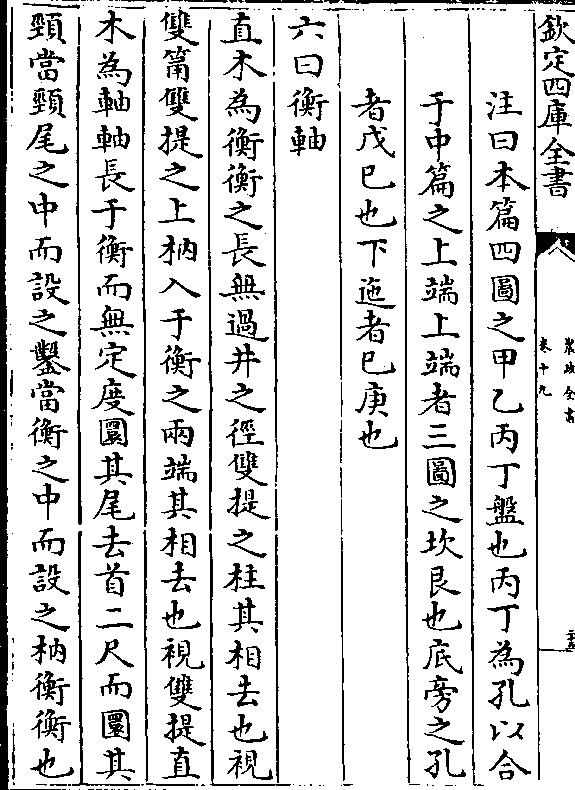 欽定四庫全書
農政全書
卷十九
注曰本篇四圖之甲乙丙丁盤也丙丁為孔以合
于中篇之上端上端者三圖之坎艮也底旁之孔
者戊巳也下迤者巳庚也
六曰衡軸
直木為衡衡之長無過井之徑雙提之柱其相去也視
雙筩雙提之上枘入于衡之兩端其相去也視雙提直
木為軸軸長于衡而無定度圜其尾去首二尺而圜其
頸當頸尾之中而設之鑿當衡之中而設之枘衡衡也